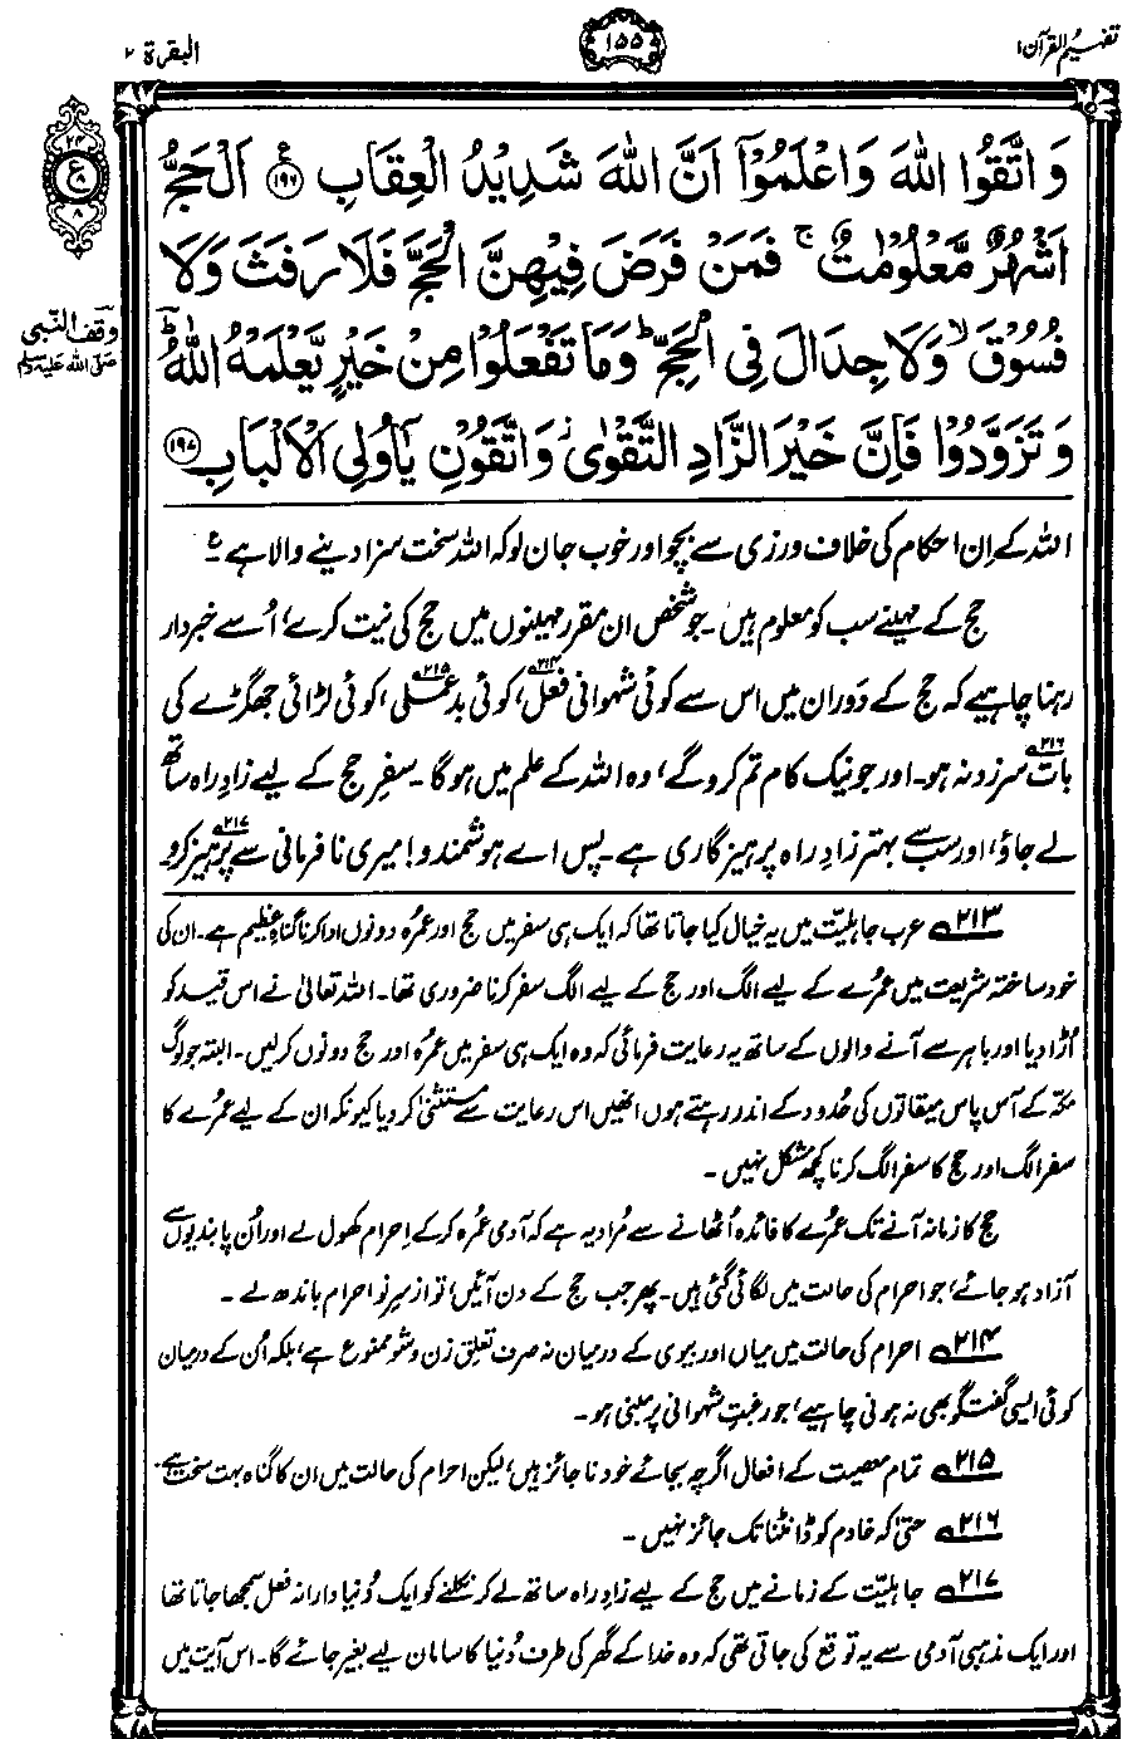 تفہیم القرآن ۱
۱۵۵
البقرۃ ۲
وَاتَّقُوا اللّٰهَ وَاعْلَمُوْٓا اَنَّ اللّٰهَ شَدِيْدُ الْعِقَابِ ﴿۱۹۶﴾ ع اَلْحَجُّ
اَشْهُرٌ مَّعْلُوْمٰتٌ ۚ فَمَنْ فَرَضَ فِيْهِنَّ الْحَجَّ فَلَا رَفَثَ وَلَا
فُسُوْقَ ۙ وَلَا جِدَالَ فِى الْحَجِّ ؕ وَمَا تَفْعَلُوْا مِنْ خَيْرٍ يَّعْلَمْهُ اللّٰهُ ؕ
وَتَزَوَّدُوْا فَاِنَّ خَيْرَ الزَّادِ التَّقْوٰى ۫ وَاتَّقُوْنِ يٰٓاُولِى الْاَلْبَابِ ﴿۱۹۷﴾
۲۴
ع
۸
۸
وقف النّبی
صلی اللہ علیہ وسلم
اللہ کے اِن احکام کی خلاف ورزی سے بچو اور خوب جان لو کہ اللہ سخت سزا دینے والا ہے۔ ع
حج کے مہینے سب کو معلوم ہیں۔ جو شخص ان مقرر مہینوں میں حج کی نیت کرے، اُسے خبردار
رہنا چاہیے کہ حج کے دَوران میں اس سے کوئی شہوانی فعل ۲۱۴، کوئی بدعملی ۲۱۵، کوئی لڑائی جھگڑے کی
بات ۲۱۶ سرزد نہ ہو۔ اور جو نیک کام تم کرو گے، وہ اللہ کے علم میں ہو گا۔ سفرِ حج کے لیے زادِ راہ ساتھ
لے جاؤ، اور سب سے بہتر زادِ راہ پرہیزگاری ہے۔ پس اے ہوشمندو! میری نافرمانی سے پرہیز کرو ۲۱۷
۲۱۳؂ عرب جاہلیّت میں یہ خیال کیا جاتا تھا کہ ایک ہی سفر میں حج اور عمرُہ دونوں ادا کرنا گناہِ عظیم ہے۔ ان کی
خود ساختہ شریعت میں عمرُے کے لیے الگ اور حج کے لیے الگ سفر کرنا ضروری تھا۔ اللہ تعالیٰ نے اس قید کو
اُڑا دیا اور باہر سے آنے والوں کے ساتھ یہ رعایت فرمائی کہ وہ ایک ہی سفر میں عمرُہ اور حج دونوں کر لیں۔ البتہ جو لوگ
مکّہ کے آس پاس میقاتوں کی حُدود کے اندر رہتے ہوں انھیں اس رعایت سے مستثنیٰ کر دیا کیونکہ ان کے لیے عمرُے کا
سفر الگ اور حج کا سفر الگ کرنا کچھ مشکل نہیں۔
حج کا زمانہ آنے تک عمرُے کا فائدہ اُٹھانے سے مُراد یہ ہے کہ آدمی عمرُہ کر کے اِحرام کھول لے اور اُن پابندیوں سے
آزاد ہو جائے، جو احرام کی حالت میں لگائی گئی ہیں۔ پھر جب حج کے دن آئیں، تو از سرِ نو احرام باندھ لے۔
۲۱۴؂ احرام کی حالت میں میاں اور بیوی کے درمیان نہ صرف تعلقِ زن و شو ممنوع ہے، بلکہ اُن کے درمیان
کوئی ایسی گفتگو بھی نہ ہونی چاہیے، جو رغبتِ شہوانی پر مبنی ہو۔
۲۱۵؂ تمام معصیت کے افعال اگرچہ بجائے خود ناجائز ہیں، لیکن احرام کی حالت میں ان کا گناہ بہت سخت ہے۔
۲۱۶؂ حتیٰ کہ خادم کو ڈانٹنا تک جائز نہیں۔
۲۱۷؂ جاہلیّت کے زمانے میں حج کے لیے زادِ راہ ساتھ لے کر نکلنے کو ایک دُنیا دارانہ فعل سمجھا جاتا تھا
اور ایک مذہبی آدمی سے یہ توقع کی جاتی تھی کہ وہ خدا کے گھر کی طرف دُنیا کا سامان لیے بغیر جائے گا۔ اس آیت میں